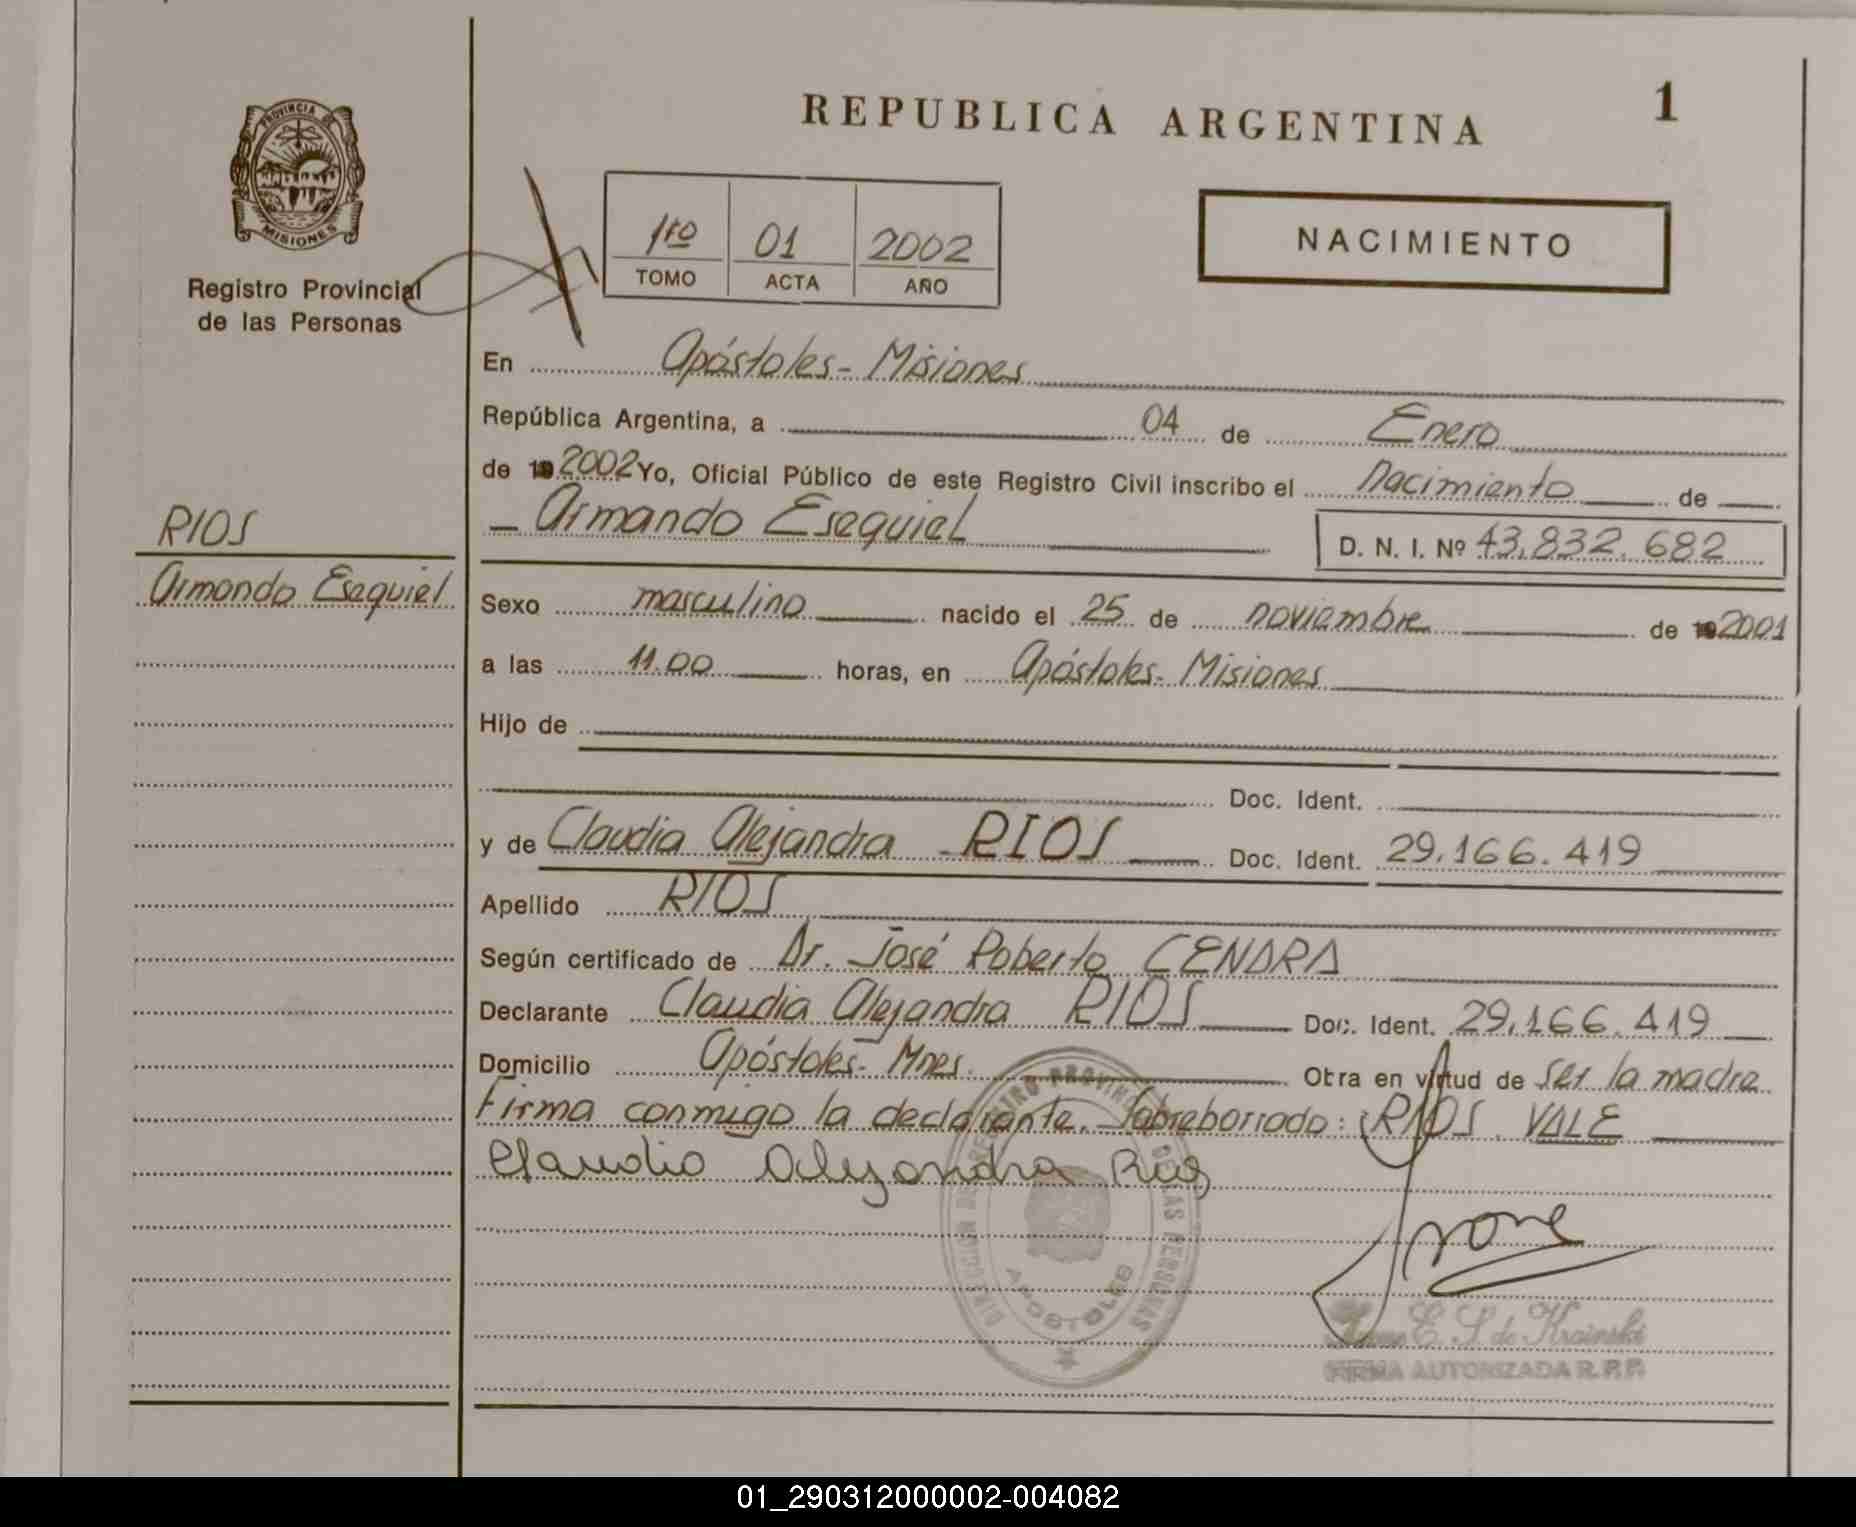 REPUBLICA ARGENTINA
1
PROVINCIA DE
MISIONES
Registro Provincial
de las Personas
1ro 01 2002
TOMO ACTA AÑO
NACIMIENTO
En Apóstoles - Misiones
República Argentina, a 04 de Enero
de 19 2002 Yo, Oficial Público de este Registro Civil inscribo el Nacimiento de
Armando Esequiel D. N. I. Nº 43.832.682
RIOS
Armando Esequiel
Sexo masculino nacido el 25 de noviembre de 19 2001
a las 11.00 horas, en Apóstoles - Misiones
Hijo de
Doc. Ident.
y de Claudia Alejandra RIOS Doc. Ident. 29.166.419
Apellido RIOS
Según certificado de Dr. José Roberto CENDRA
Declarante Claudia Alejandra RIOS Doc. Ident. 29.166.419
Domicilio Apóstoles - Mnes. Otra en virtud de ser la madre
Firma conmigo la declarante. Sobreborrado: RIOS. VALE
Claudia Alejandra Rios
DIRECCIÓN DE REGISTRO PROVINCIAL DE LAS PERSONAS
APOSTOLES
E. S. de Krainski
FIRMA AUTORIZADA R.P.P.
01_290312000002-004082